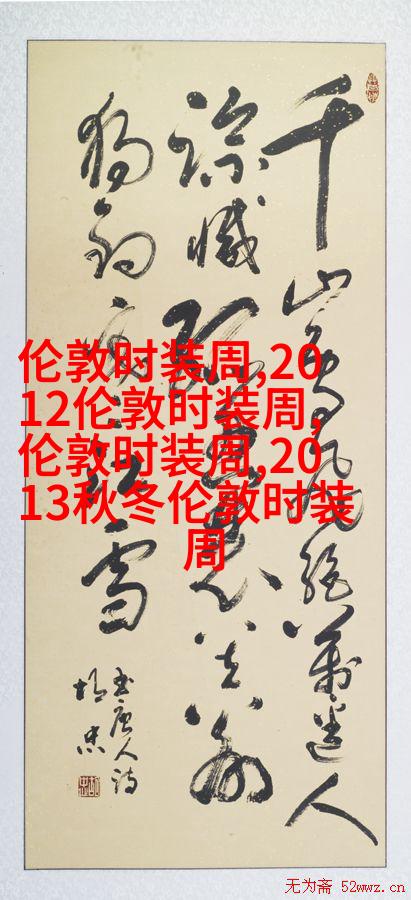 伦敦时装周,20
12伦敦时装周,
伦敦时装周,20
13秋冬伦敦时装
周
千山鸟飞绝万迳人
踪滅孤舟蓑笠翁
独钓寒江雪
书唐人诗
无为斋 52wwz.cn